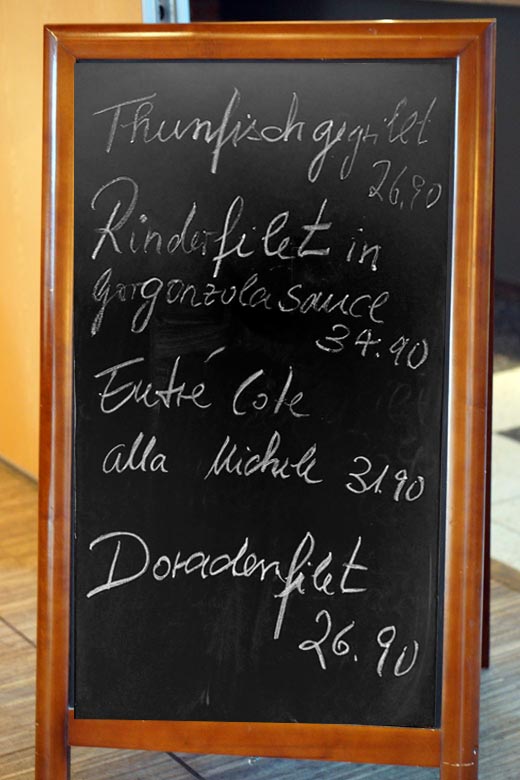 Thunfisch gegrillt
26,90
Rinderfilet in
Gorgonzolasauce
34.90
Entré Cote
alla Michele 31.90
Doradenfilet
26.90